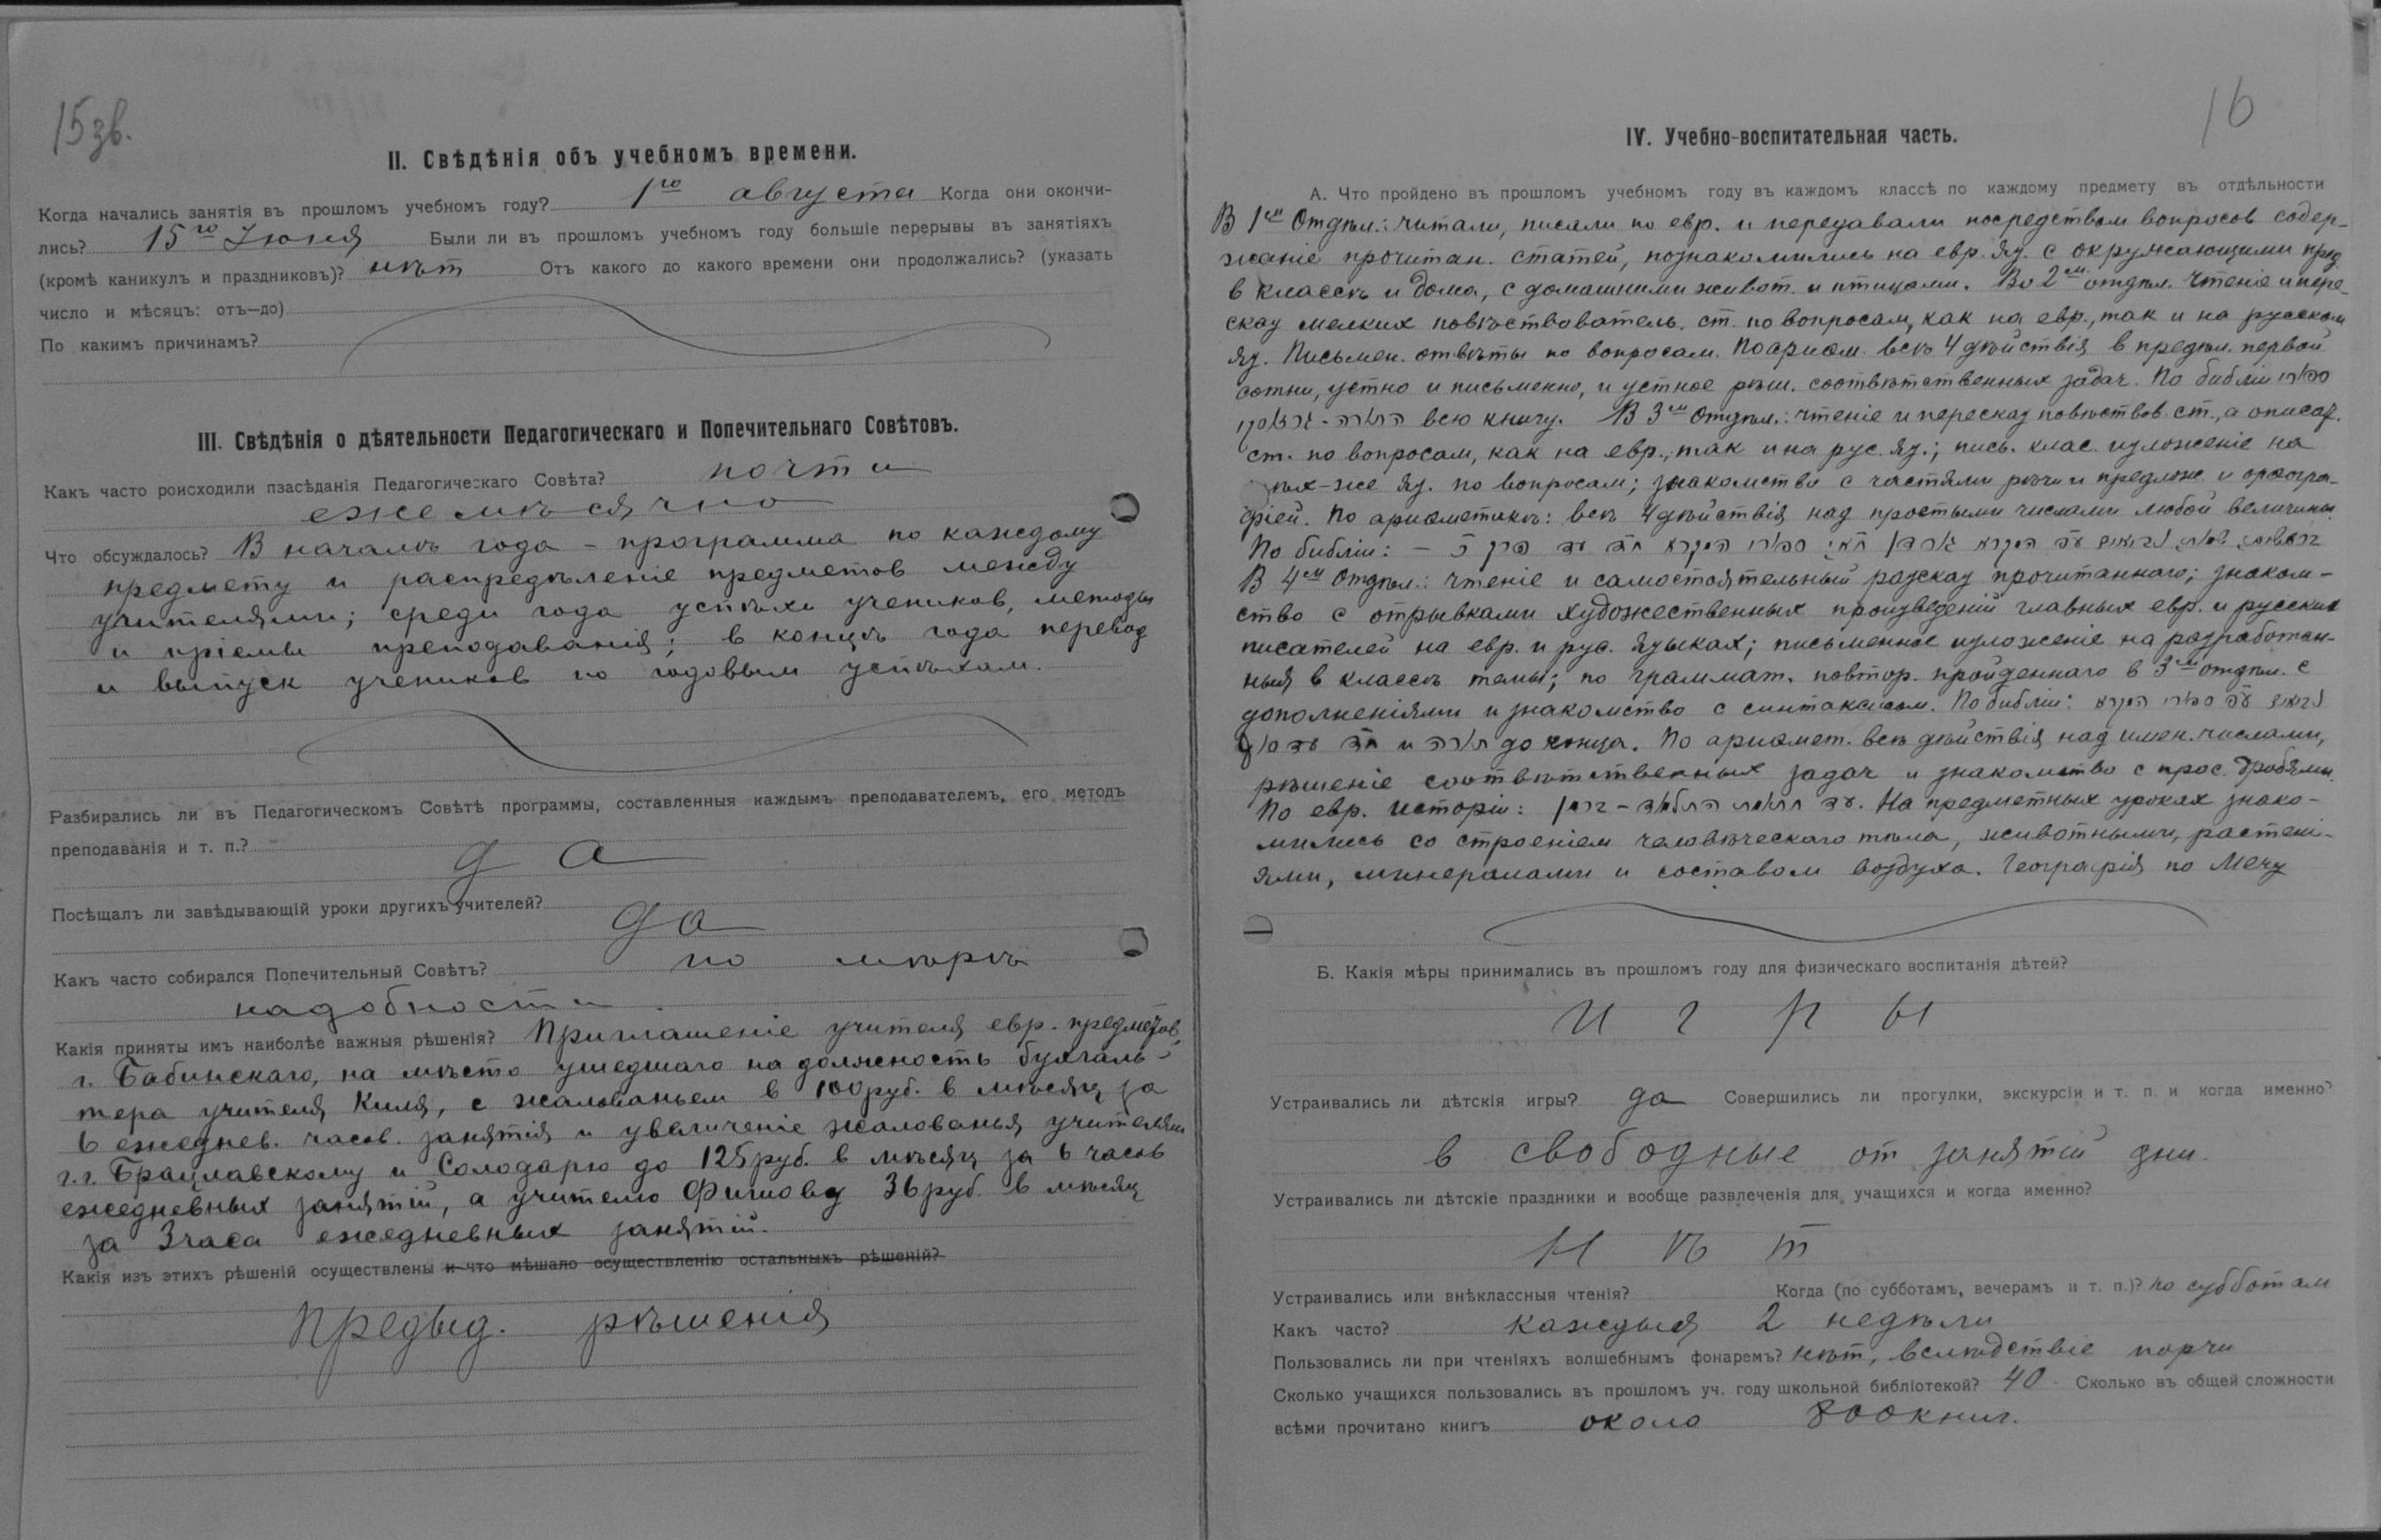 15 зв.
II. Свѣдѣнія объ учебномъ времени.
Когда начались занятія въ прошломъ учебномъ году? 1го августа Когда они окончи-
лись? 15го Іюня Были ли въ прошломъ учебномъ году большіе перерывы въ занятіяхъ
(кромѣ каникулъ и праздниковъ)? нѣт Отъ какого до какого времени они продолжались? (указать
число и мѣсяцъ: отъ—до)
По какимъ причинамъ?
III. Свѣдѣнія о дѣятельности Педагогическаго и Попечительнаго Совѣтовъ.
Какъ часто роисходили пзасѣданія Педагогическаго Совѣта? почти
ежемѣсячно
Что обсуждалось? В началѣ года – программа по каждому
предмету и распредѣленіе предметов между
учителями; среди года успѣхи учеников, методы
и пріемы преподаванія; в концѣ года перевод
и выпуск учеников по годовым успѣхам.
Разбирались ли въ Педагогическомъ Совѣтѣ программы, составленныя каждымъ преподавателемъ, его методъ
преподаванія и т. п.?
да
Посѣщалъ ли завѣдывающій уроки другихъ учителей?
да
Какъ часто собирался Попечительный Совѣтъ? по мѣрѣ
надобности
Какія приняты имъ наиболѣе важныя рѣшенія? Приглашеніе учителя евр. предметов,
г. Бабинскаго, на мѣсто ушедшаго на должность бухгаль-
тера учителя Киля, с жалованьем в 100 руб. в мѣсяц за
6 ежеднев. часов. занятія и увеличеніе жалованья учителям
г.г. Брацлавскому и Солодарю до 125 руб. в мѣсяц за 6 часов
ежедневных занятій, а учителю 36 руб. в мѣсяц
за 3 часа ежедневных занятій.
Какія изъ этихъ рѣшеній осуществлены и что мѣшало осуществленію остальныхъ рѣшеній?
Предыд. рѣшенія
16
IV. Учебно-воспитательная часть.
А. Что пройдено въ прошломъ учебномъ году въ каждомъ классѣ по каждому предмету въ отдѣльности
В 1ом Отдѣл.: читали, писали по евр. и передавали посредством вопросов содер-
жаніе прочитан. статей, познакомились на евр. яз. с окружающими пред
в классѣ и дома, с домашними живот. и птицами. Во 2ом отдѣл. чтеніе и пере-
сказ мелких повѣствователь. ст. по вопросам, как на евр., так и на русском
яз. Письмен. отвѣты по вопросам. По ариѳм. всѣ 4 дѣйствія в предѣл. первой
сотни, устно и письменно, и устное рѣш. соотвѣтственных задач. По библіи
всю книгу. В 3ем Отдѣл.: чтеніе и пересказ повѣствов. ст., а описат.
ст. по вопросам, как на евр., так и на рус. яз.; пись. клас. изложеніе на
яз. по вопросам; знакомство с частями рѣчи и предлож. и орѳогра-
фіей. По ариѳметикѣ: всѣ 4 дѣйствія над простыми числами любой величины.
По библіи: –
В 4ом Отдѣл.: чтеніе и самостоятельный разсказ прочитаннаго; знаком-
ство с отрывками художественных произведеній главных евр. и русских
писателей на евр. и рус. языках; письменное изложеніе на разработан-
ныя в классѣ темы; по граммат. повтор. пройденнаго в 3ем отдѣл. с
дополненіями и знакомство с синтаксисом. По библіи:
и до конца. По ариѳмет. всѣ дѣйствія над имен. числами,
рѣшеніе соотвѣтственных задач и знакомство с прос. дробями.
По евр. исторіи: На предметных уроках знако-
мились со строеніем человѣческаго тѣла, животными, растені-
ями, минералами и составом воздуха. Географія по Мечу
Б. Какія мѣры принимались въ прошломъ году для физическаго воспитанія дѣтей?
игры
Устраивались ли дѣтскія игры? да Совершились ли прогулки, экскурсіи и т. п. и когда именно?
в свободные от занятій дни.
Устраивались ли дѣтскіе праздники и вообще развлеченія для учащихся и когда именно?
нѣт
Устраивались или внѣклассныя чтенія? Когда (по субботамъ, вечерамъ и т. п.)? по субботам
Какъ часто? каждыя 2 недѣли
Пользовались ли при чтеніяхъ волшебнымъ фонаремъ? нѣт, вслѣдствіе порчи
Сколько учащихся пользовались въ прошломъ уч. году школьной библіотекой? 40 Сколько въ общей сложности
всѣми прочитано книгъ около 800 книг.